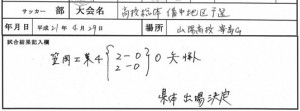 サッカー 部 大会名 高校総体 備中地区予選
年月日 平成21年4月29日 場所 山陽高校 寄島G
試合結果記入欄
笠岡工業 4 { 2-0 2-0 } 0 矢掛
県体出場決定